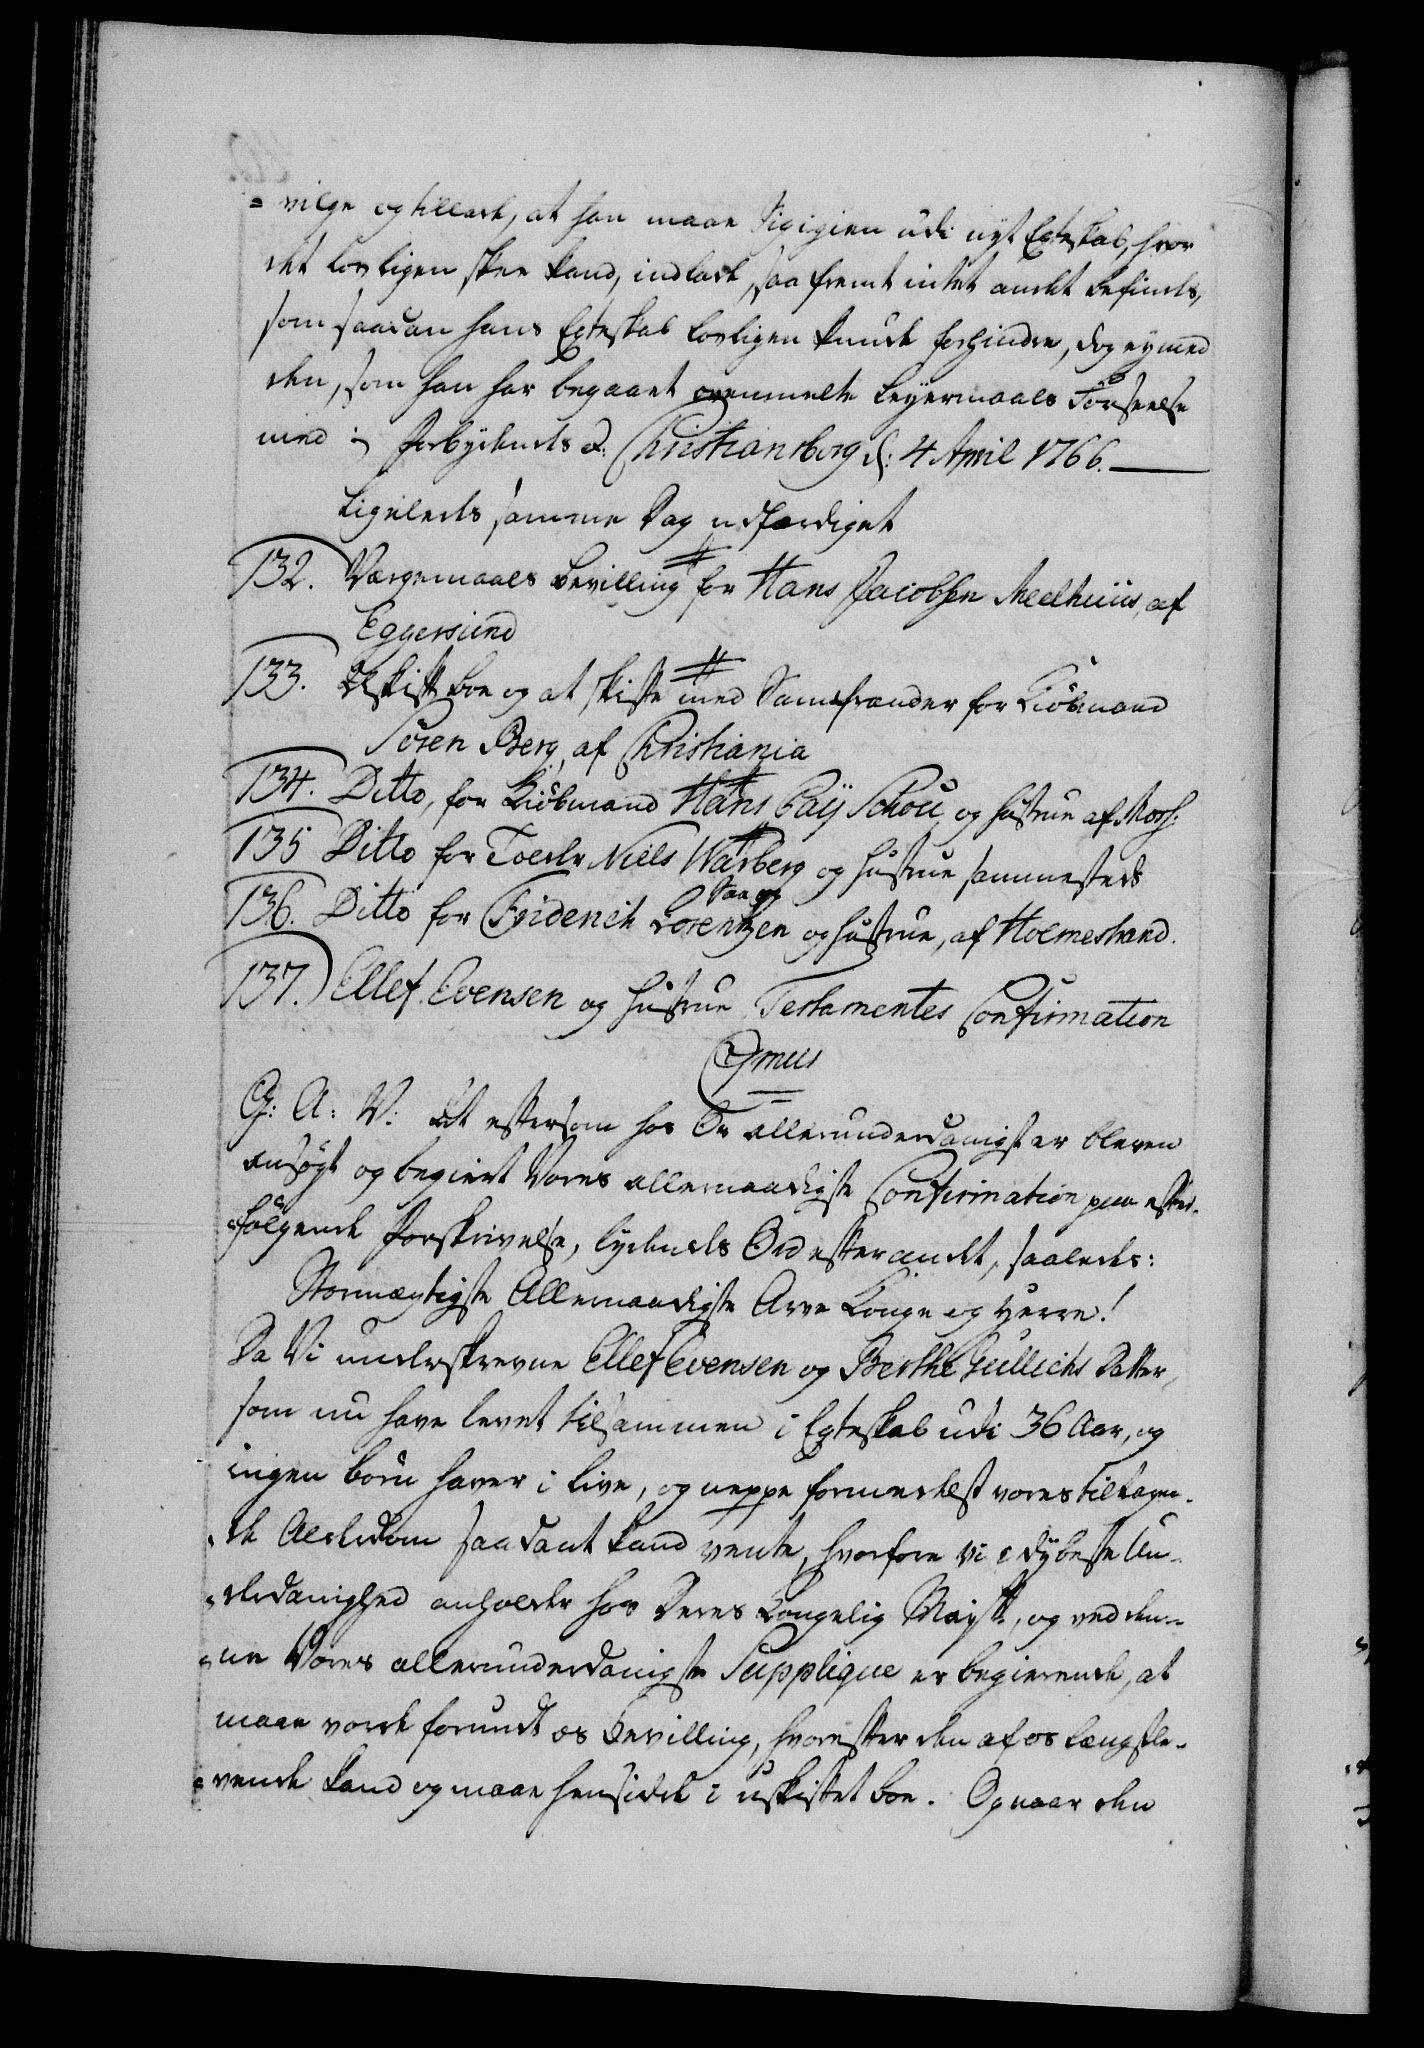 = vilge og tillade, at han maae Sig igien udi nyt Egteskab, hvor
det lovligen skee kand, indlade, saa fremt intet andet befindes,
som saadan hans Egteskab lovligen kunde forhindre, dog ey med
den, som han har begaaet ovenmelte Leyermaals Forseelse
med ;/ Forbydendes &: Christiansborg d: 4 April 1766.
Ligeledes samme Dag udfærdiget
132. Værgemaals Bevilling for Hans Jacobsen Meelhuus, af
Eggersund
133. Uskift Boe og at skifte med Samfrænder for Kiøbmand
Søren Berg, af Christiania
134. Ditto, for Kiöbmand Hans Paÿ Schou og Hustrue af Moss:
135 Ditto for Toeder Niels Warberg og Hustrue sammesteds
Saug
136. Ditto for Friderich Lorentzen og Hustrue, af Holmestrand.
137. Ellef Evensen og Hustrue Testamentes Confirmation
Gmus
G: A: V: At eftersom hos Os allerunderdanigst er bleven
ansøgt og begiert Vores allernaadigste Confirmation paa efter-
=følgende Forskrivelse, lydendes Ord efter andet, saaledes:
Stormægtigste Allernaadigste Arve Konge og Herre!
Da Vi underskrevne Ellef Evensen og Berthe Gullichs Datter,
som nu have levet tilsammen i Egteskab udi 36 Aar, og
ingen börn haver i live, og neppe formedelst vores tiltagen-
de Alderdom saadant kand vente, hvorfore Vi i dÿbeste Un-
derdanighed anholder hos Deres Kongelig Mayst:, og ved den-
=ne Vores allerunderdanigste Supplique er begierende, at
maae vorde forundt os Bevilling, hvorefter den af os længstle-
=vende kand og maae hensidde i uskiftet Boe. Og naar den